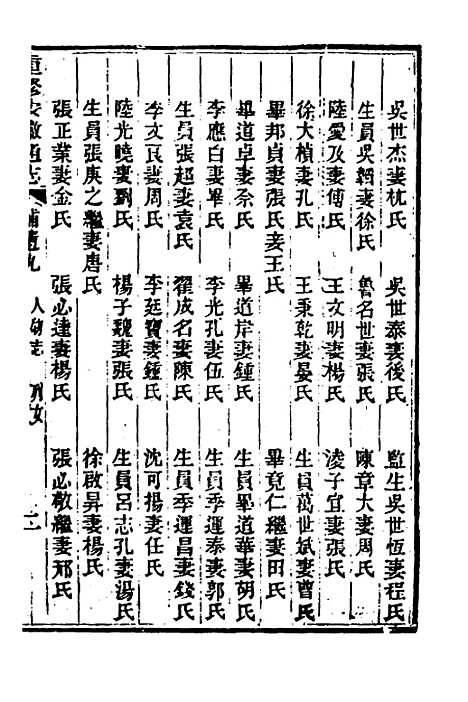 吳世杰妻枕氏　吳世泰妻後氏　監生吳世恆妻程氏
生員吳韜妻徐氏　魯名世妻張氏　陳章大妻周氏
陸愛及妻傅氏　王文明妻楊氏　淩子宜妻張氏
徐大楨妻孔氏　王秉乾妻晏氏　生員萬世斌妻曹氏
畢邦貞妻張氏妾王氏　畢竟仁繼妻田氏
畢道卓妻佘氏　畢道岸妻鍾氏　生員畢道華妻胡氏
李應白妻畢氏　李光孔妻伍氏　生員季運泰妻郭氏
生員張超妻袁氏　翟成名妻陳氏　生員季運昌妻錢氏
李文良妻周氏　李廷寶妻鍾氏　沈可揚妻任氏
陸光曉妻劉氏　楊子魏妻張氏　生員呂志孔妻湯氏
生員張庚之繼妻唐氏　徐啟昇妻楊氏
張正業妻金氏　張必達妻楊氏　張必敬繼妻邢氏
重修安徽通志　補遺九　人物志　列女　二